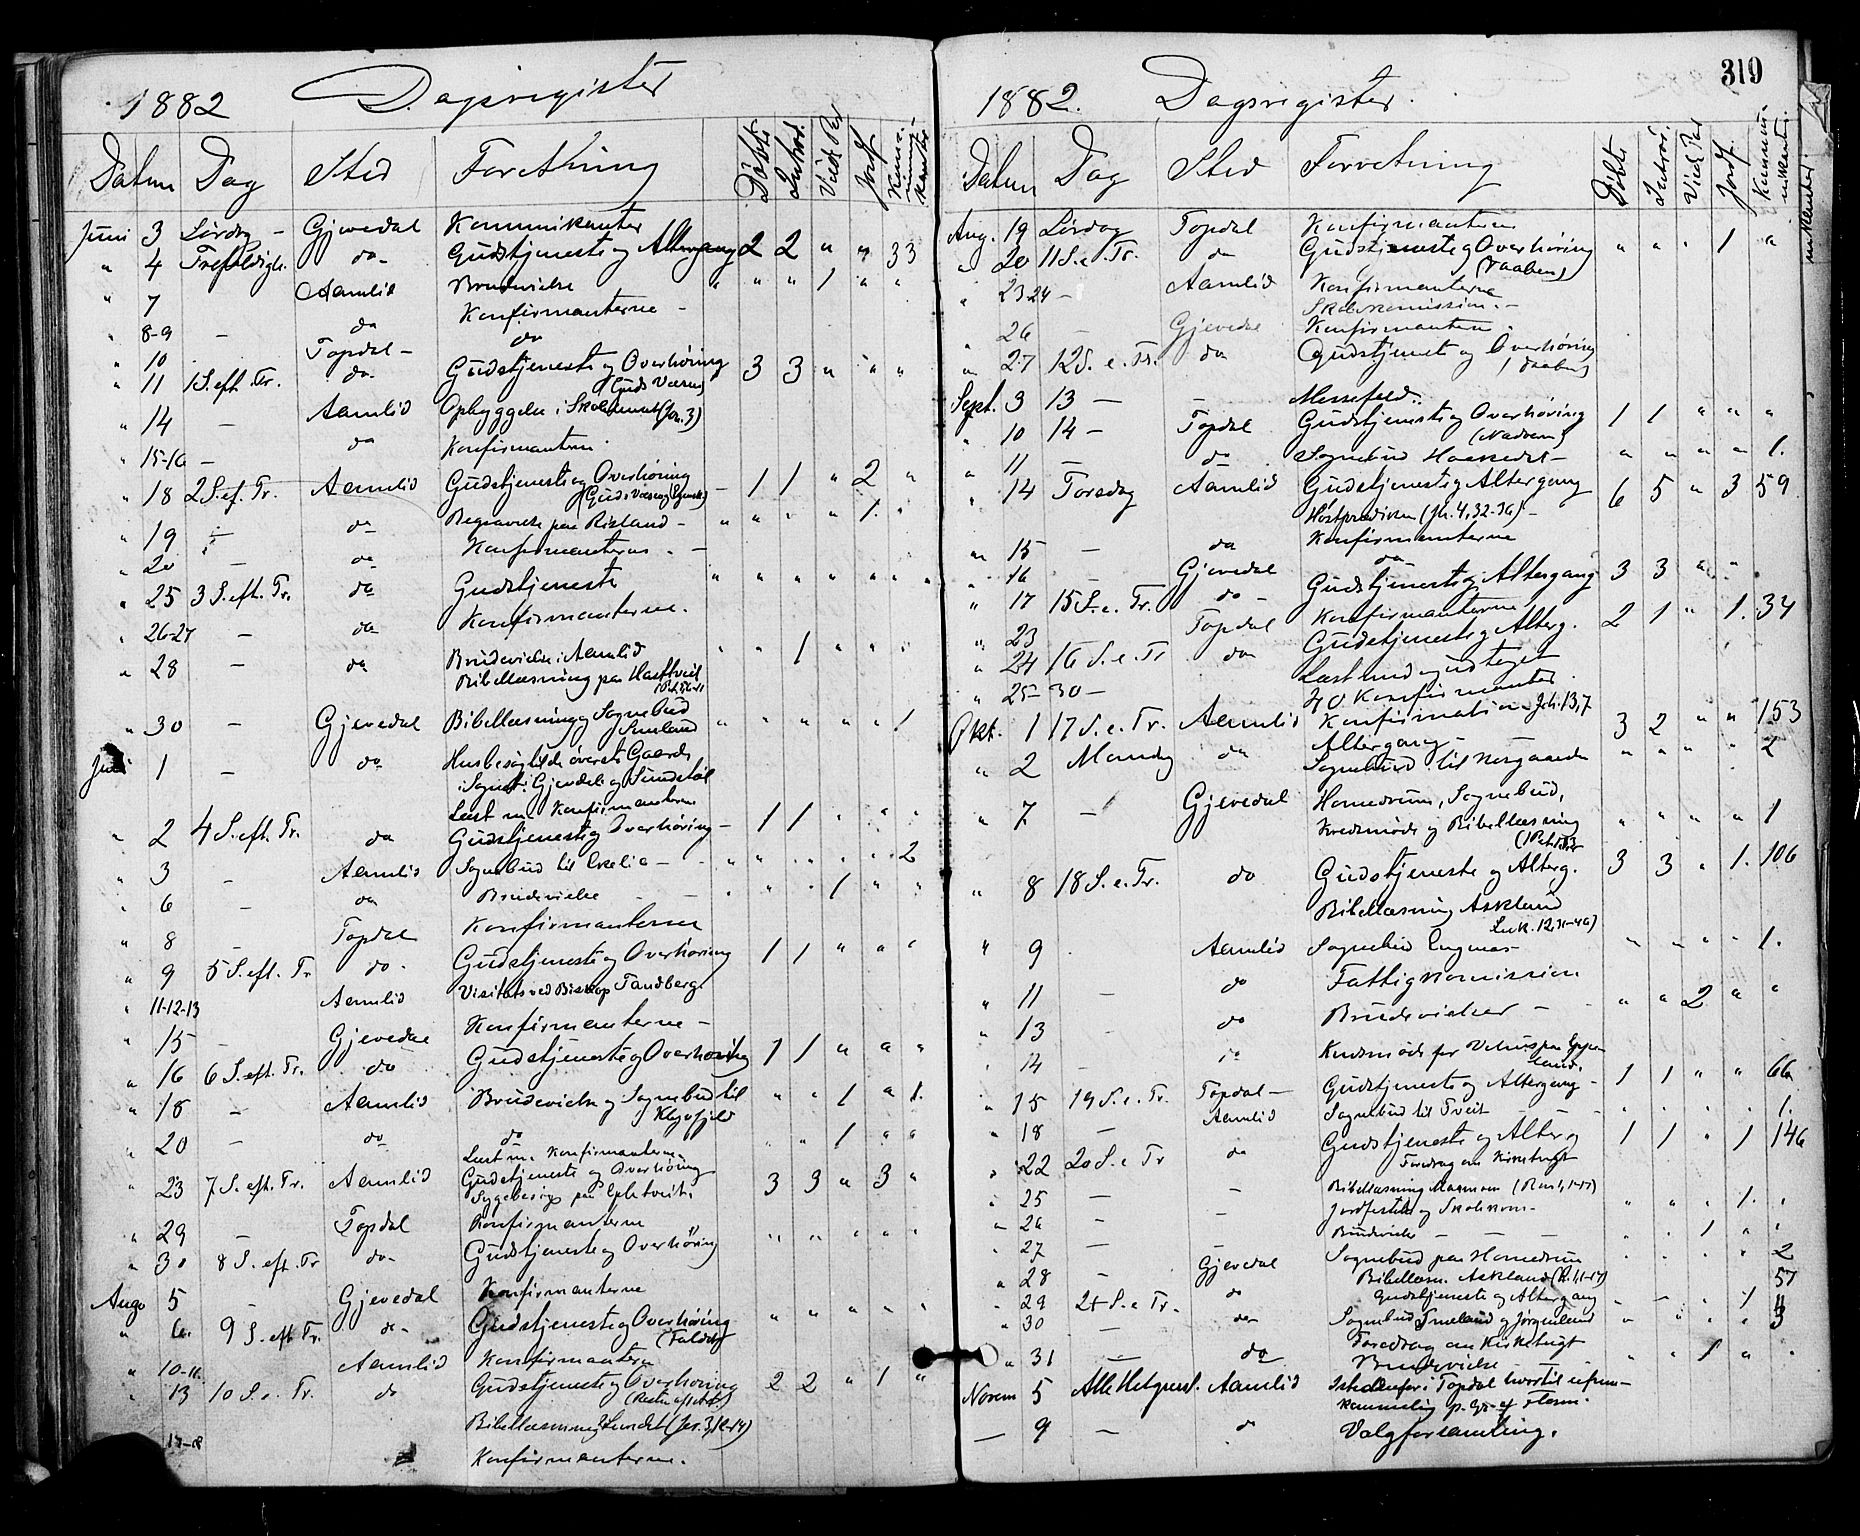 1882 Dagsregister
Datum Dag Sted Forretning Døbte Introd. Viede Par Jordf. Kommunikanter
Juni 3 Lørdag - Gjevedal Kommunikanter
" 4 Trefoldigh. do- Gudstjeneste og Altergang 2 2 " " 33
" 7 Aamlid Brudevielse " " " 1 " "
" 8-9 - do Konfirmanterne -
" 10 Topdal - do
" 11 1 S. eft. Tr. do- Gudstjeneste og Overhøring 3 3 " " "
(Guds Væsen)
" 14 - Aamlid Opbyggelse i Skolehuset (Joh. 3)
" 15-16 - do Konfirmanterne.
" 18 2 S. ef. Tr. Aamlid Gudstjeneste og Overhøring - 1 1 " 2 "
(Guds Væsen og Egensk.)
" 19 - do- Begravelse paa Risland - " " " " 1. "
" 20 - do Konfirmanterne. -
" 25 3 S. eft. Tr. do Gudstjeneste " " " " " " "
" 26-27 - do- Konfirmanterne.
" 28 - do Brudevielse i Aamlid " " 1 " " "
Bibellæsning paa
" 30 - Gjevedal Bibellæsning og Sognebud " " " " " 1
Smeland
Juli 1 - do Husbesøg til de øverste Gaarde
i Sognet: Gjevedal og Sundstøl
Læst m. Konfirmanterne
" 2 4 S. eft. Tr. do Gudstjeneste og Overhøring - 1 1 " " "
" 3 - Aamlid Sognebud til Ekelia - - " " " " " 2
" 6 - do Brudevielse - - " " " 1 " "
" 8 - Topdal Konfirmanterne
" 9 5 S. eft. Tr do- Gudstjeneste og Overhøring 1 1 " " "
" 11-12-13 Aamlid Visitats ved Biskop Tandberg.
" 15 - Gjevedal Konfirmanterne -
" 16 6 S. eft. Tr. do Gudstjeneste og Overhøring 1 1 " " "
" 18 - Aamlid Brudevielse og Sognebud til " " 1 " 1.
Klepfjeld
" 20 - do do " " 1 " "
Læst m. Konfirmanterne.
" 23 7 S. eft. Tr. Aamlid Gudstjeneste og Overhøring 3 3 " 3 "
Sygebesøg paa
" 29 - Topdal Konfirmanterne
" 30 8 S. eft. Tr do- Gudstjeneste og Overhøring " " " " " "
Aug. 5 - Gjevedal Konfirmanterne
" 6. 9 S. eft Tr. do- Gudstjeneste og Overhøring " " " " "
" 10-11. Aamlid Konfirmanterne
" 13 10 S. e. Tr. do Gudstjeneste og Overhøring 2 2 " 1 "
Bibellæsning
17-18 Konfirmanterne.
319
1882. Dagsregister.
Datum Dag Sted Forretning Døbte Introd. Viede Par Jordf. Kommunikanter.
Aug. 19 Lørdag Topdal Konfirmanterne
" 20 11 S. e. Tr. do Gudstjeneste og Overhøring " " " 1 "
(Daaben)
" 23-24 - Aamlid Konfirmanterne
Skolekomission. -
" 26 - Gjevedal Konfirmanterne.
" 27 12 S. e. Tr. do Gudstjeneste og Overhøring
(Daaben)
Sept. 3 13 - - Messefald.
" 10 14 - Topdal Gudstjeneste og Overhøring 1 1 " " "
(Nadveren)
" 11 - do Sognebud - " " " " 1.
" 14 Torsdag Aamlid Gudstjeneste og Altergang 6 5 " 3 59
Høstprædiken (Joh. 4, 32-36) -
" 15 - do Konfirmanterne
" 16 - Gjevedal do
" 17 15 S. e. Tr. do - Gudstjeneste og Altergang 3 3 " "
" 23 Topdal Konfirmanterne
" 24 16 S. e. Tr do Gudstjeneste og Alterg. 2 1 " 1. 34
" 25-30 - Læst med og udtaget
40 Konfirmanter.
Okt. 1 17 S. e. Tr. Aamlid Konfirmation Joh. 13, 7 3 2 " " 153
Altergang -
" 2 Mandag do Sognebud til Nesgaarden " " " " 2
" 7 - Gjevedal Homedrum, Sognebud,
Kredsmøde og Bibellæsning " " " " 1
" 8 18 S. e. Tr. do Gudstjeneste og Alterg. 3 3 " 1. 106
Bibellæsning Askland
" 9 Aamlid Sognebud Engenes - " " " " 1.
" 11 - do Fattigkomission
" 13 - do Brudevielser - - " " 2 " "
" 14 - do Kredsmøde for
" 15 19 S. e. Tr. Topdal - Gudstjeneste og Altergang - 1 1 " " 66
" 18 - Aamlid Sognebud til Tveit - - " " " " 1.
" 22 20 S. e Tr do Gudstjeneste og Alterg 1 1 " 1 146
Foredrag om Kirketugt
" 25 - - Bibellæsning
" 26 - - Jordfæstelse og Skolekom. " " " 1. "
" 27 - Brudevielse - - - " " 1 " "
" 28 - Gjevedal Sognebud paa Homedrum " " " " 2
Bibellæsn. Askland
" 29 21 S. e Tr. do Gudstjeneste og Altergang " - " 1
" 30 - do- Sognebud Smeland og Jørgenlund " " " " 3
Foredrag om Kirketugt
" 31 - do Brudevielse " " 1 " "
Novem 5 Alle Helgensd. Aamlid Istedenfor i Topdal hvortil ufrem-
kommelig p. Gr. af Flom.
- 9 - do Valgforsamling.